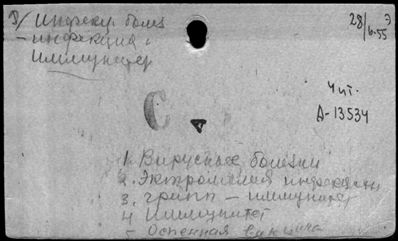 Э/ Инфекц. болез
— инфекция и
Иммунитет
28/6.55 Э
Чит.
Д-13534
С
1. Вирусные болезни
2. Эктромелия инфекцион
3. Грипп — иммунитет
4 Иммунитет
- Оспенная вакцина